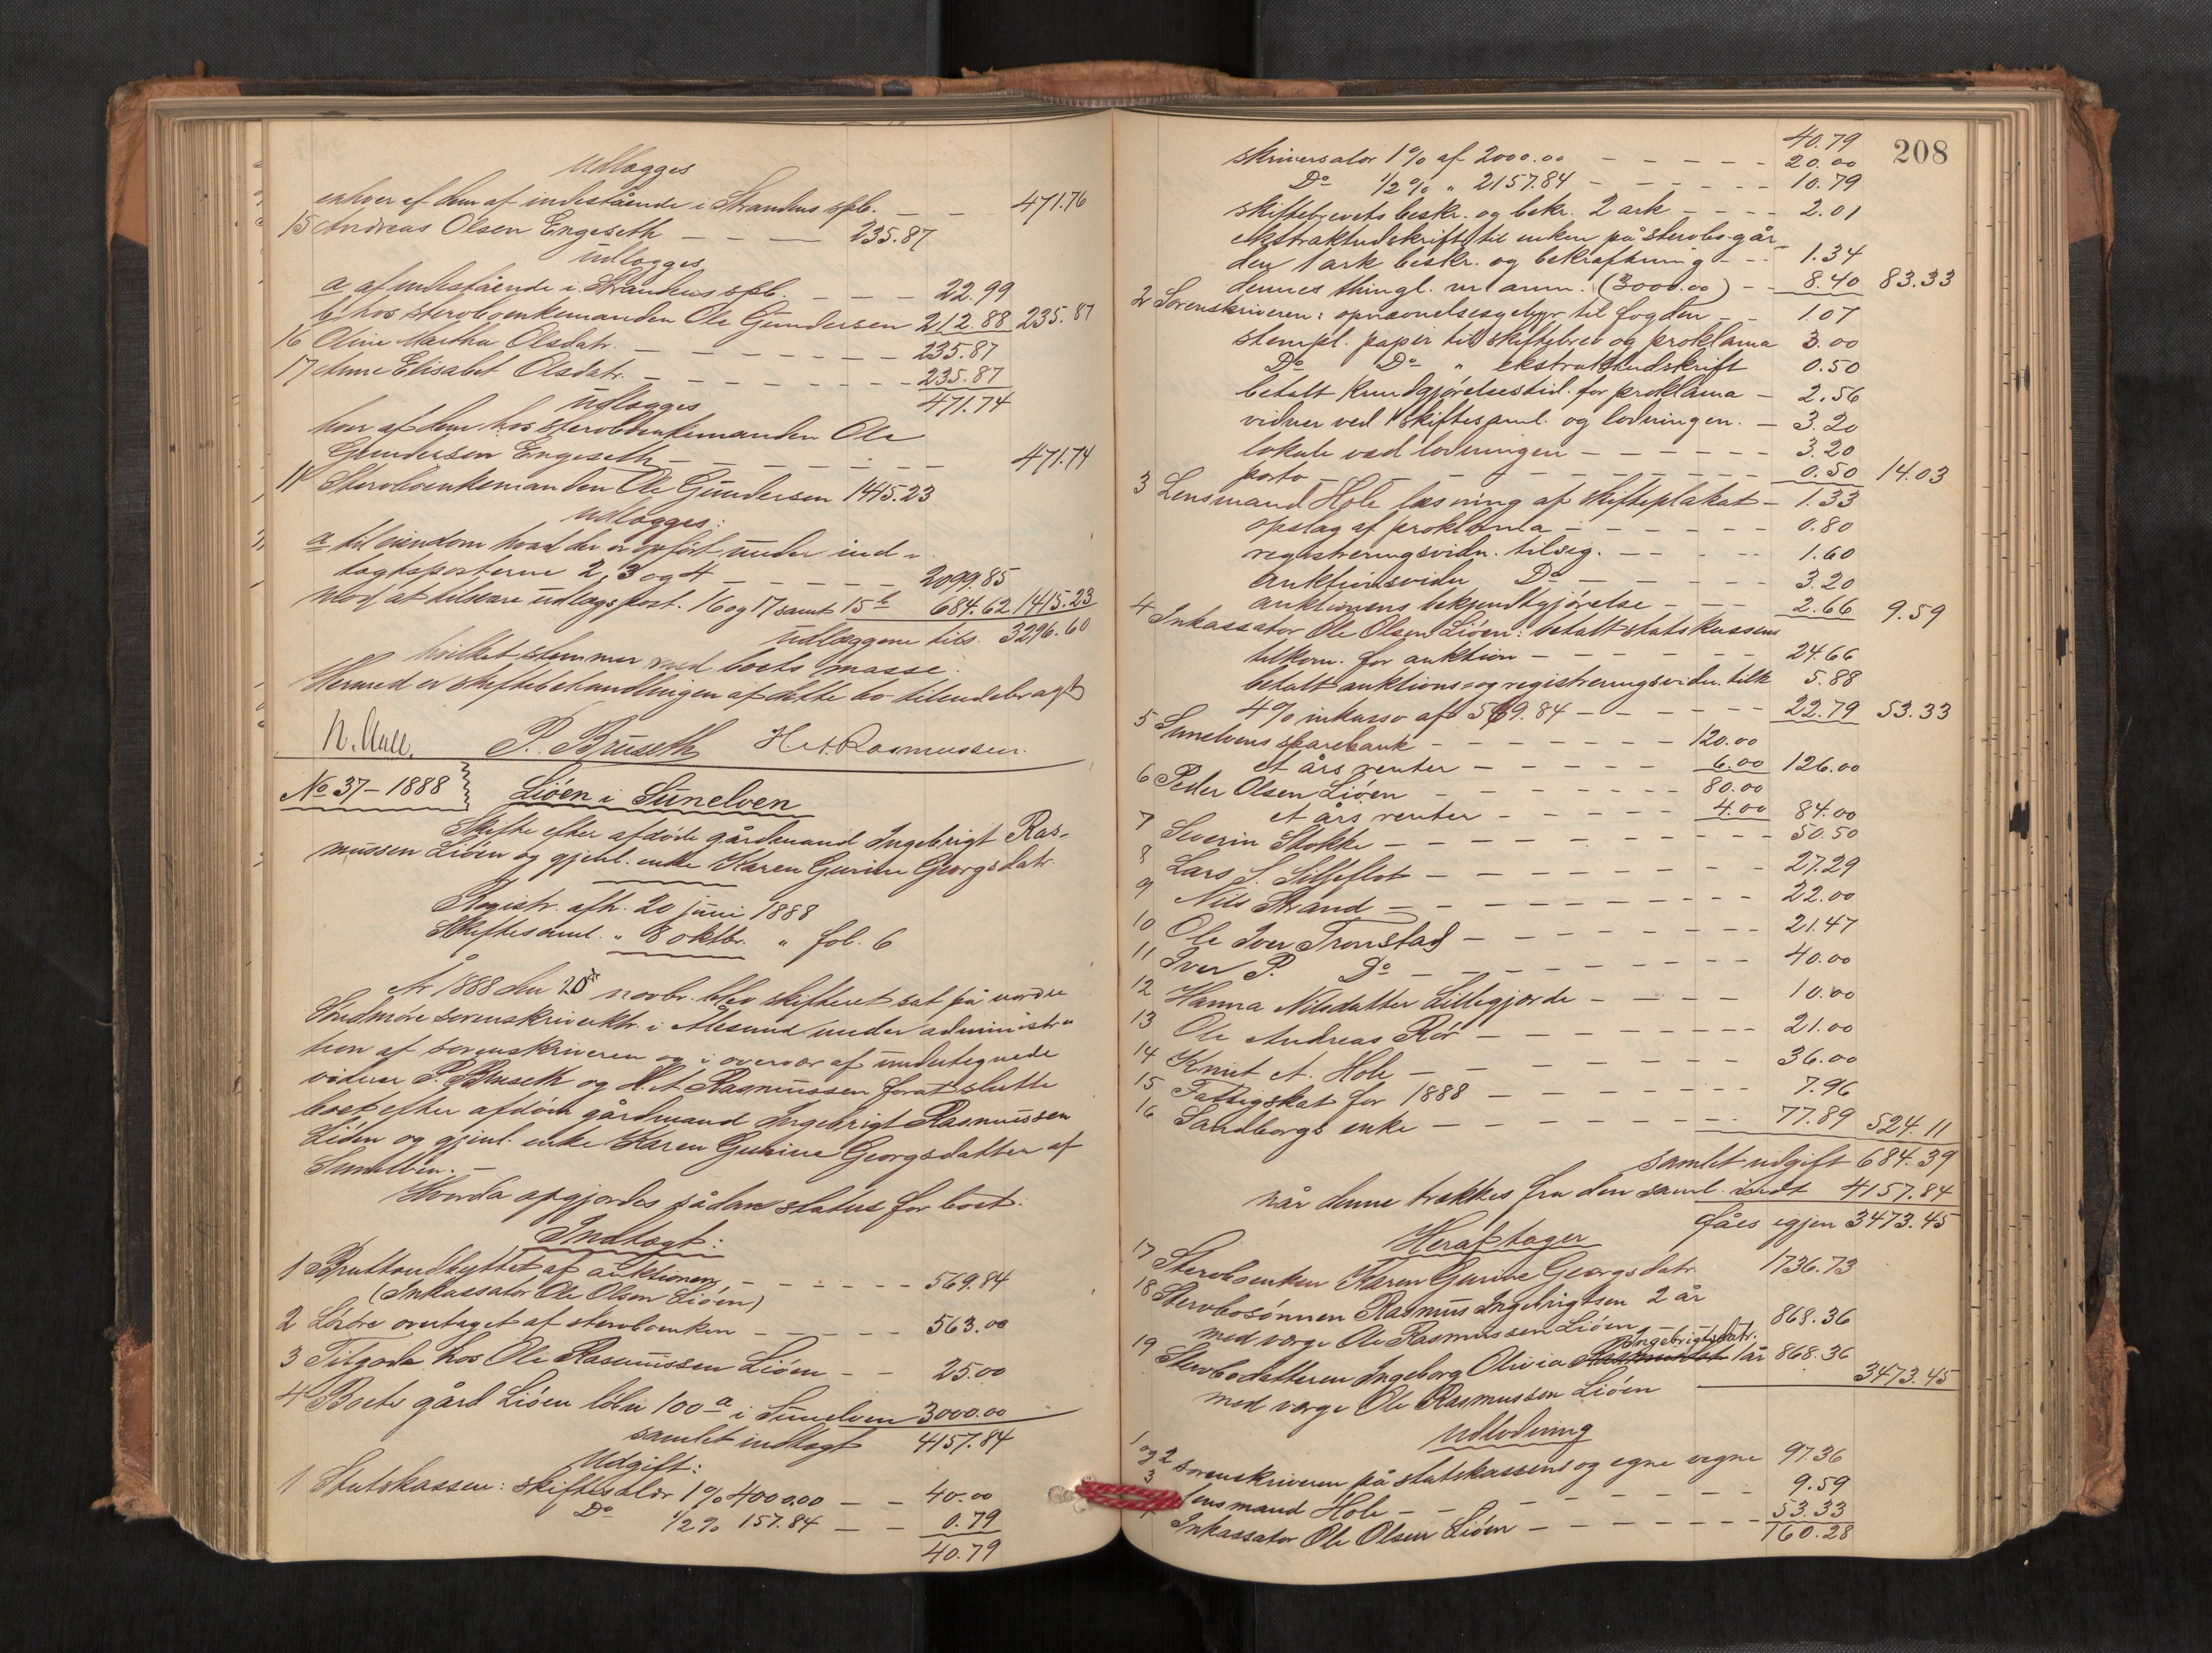 Udlægges
enhver af dem af indestående i Strandens spb. — — 471.76
15 Andreas Olsen Engeseth — — — 235.87
Udlægges
a af indestående i Strandens spb. — — — 22.99
b hos sterboenkemanden Ole Gundersen 212.88 235.87
16 Oline Martha Olsdatr. — — — — — — 235.87
17 Anne Elisabet Olsdatr. — — — — — — 235.87
Udlægges 471.74
hver af dem hos sterboenkemanden Ole
Gundersen Engeseth — — — — — — 471.74
11 Sterboenkemanden Ole Gundersen 1415.23
Udlægges:
a til eiendom hvad der er opført under ind-
tægtsposterne 2, 3 og 4 — — — — — 2099.85
mod at tilsvare udlægs post. 16 og 17 samt 15 b 684.62 1415.23
Udlæggene tils. 3296.60
hvilket stemmer med boets masse.
Hermed er skiftebehandlingen af dette bo tilendebragt
P. Bruseth H. A. Rasmussen.
No 37 – 1888 Liøen i Sunelven
Skifte efter afdøde gårdmand Ingebrigt Ras-
mussen Liøen og gjenl. enke Karen Gurine Georgsdatr.
Registr. afh. 20 juni 1888
Skiftesaml. „ 8 oktbr. „ fol. 6
År 1888 den 20de novbr. blev skifteret sat på nordre
Søndmøre sorenskriverktr. i Ålesund under administra
tion af sorenskriveren og i overvær af undertegnede
vidner P. Bruseth og H. A. Rasmussen forat slutte
boet efter afdøde gårdmand Ingebrigt Rasmussen
Liøen og gjenl. enke Karen Gurine Georgsdatter af
Sunelven. —
Hvorda opgjordes sådan status for boet:
Indtægt:
1 Bruttoudbyttet af auktionen — — — — — 569.84
(Inkassator Ole Olsen Liøen)
2 Løsøre overtaget af sterboenken — — — — — 563.00
3 Tilgode hos Ole Rasmussen Liøen — — 25.00
4 Boets gård Liøen løbnr 100 a i Sunelven 3000.00
samlet indtægt 4157.84
Udgift:
1 Statskassen: skiftesalær 1% 4000.00 — — 40.00
Do 1/2% 157.84 — — 0.79
40.79
208
40.79
skriversalær 1% af 2000.00 — — — — — 20.00
Do 1/2% „ 2157.84 — — — — — 10.79
skiftebrevets beskr. og bekr. 2 ark — — — — 2.01
ekstraktudskrift til enken på sterbo-går-
den 1 ark beskr. og bekræftning — — — 1.34
dennes thingl. m anm. (3000.00) — — 8.40 83.33
2 Sorenskriveren: opnævnelsesgebyr til fogden — — 1.07
stempl. papir til skiftebrev og proklama 3.00
Do Do „ ekstraktudskrift 0.50
betalt Kundgjørelsestid. for proklama — 2.56
vidner ved skiftesaml. og lodningen. — 3.20
lokale ved lodningen — — — — — — 3.20
porto — — — — — — — — 0.50 14.03
3 Lensmand Hole læsning af skifteplakat — 1.33
opslag af proklama — — — — — — 0.80
registreringsvidn. tilsig. — — — — 1.60
auktionsvidn Do — — — — — 3.20
auktionens bekjendtgjørelse — — — 2.66 9.59
4 Inkassator Ole Olsen Liøen: betalt statskassens
tilkom. for auktion — — — — — — 24.66
betalt auktions- og registreringsvidn. tilk 5.88
4% inkasso af 569.84 — — — — — 22.79 53.33
5 Sunelvens sparebank — — — — — — 120.00
et års renter — — — — — 6.00 126.00
6 Peder Olsen Liøen — — — — — — — 80.00
et års renter — — — — — 4.00 84.00
7 Severin Stokke — — — — — — — — — 50.50
8 Lars S. Silseflot — — — — — — — — 27.29
9 Nils Strand — — — — — — — — — 22.00
10 Ole Iver Tronstad — — — — — — — — 21.47
11 Iver P. Do — — — — — — — — 40.00
12 Hanna Nilsdatter Lillegjærde — — — — 10.00
13 Ole Andreas Rør — — — — — — — 21.00
14 Knut A. Hole — — — — — — — — 36.00
15 Fattigskat for 1888 — — — — — — 7.96
16 Sandborgs enke — — — — — — — 77.89 524.11
samlet udgift 684.39
når denne trækkes fra den saml. indt 4157.84
fåes igjen 3473.45
Heraf tager
17 Sterboenken Karen Gurine Georgsdatr. 1736.73
18 Sterbosønnen Rasmus Ingebrigtsen 2 år
med værge Ole Rasmussen Liøen — — 868.36
Ingebrigtsdatr.
19 Sterbodatteren Ingeborg Olivia 1 år 868.36
3473.45
med værge Ole Rasmussen Liøen
Udlodning
1 og 2 sorenskriveren på statskassens og egne vegne 97.36
3 lensmand Hole — — — — — — — — 9.59
Inkassator Ole Olsen Liøen — — — — — — 53.33
160.28